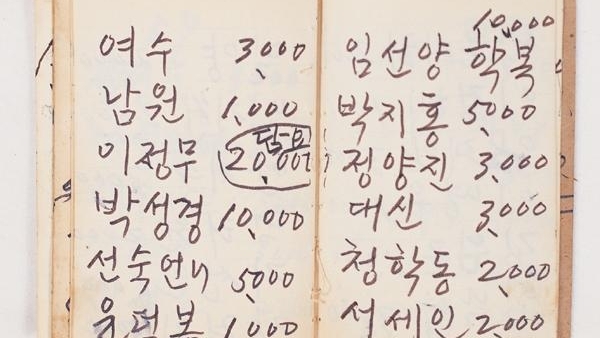 여수 3,000
남원 1,000
이정무 20,000
박성경 10,000
선숙언니 5,000
유덕봉 1,000
10,000
임선양 학복
박지홍 5,000
정양진 3,000
대신 3,000
청학동 2,000
서세인 2,000